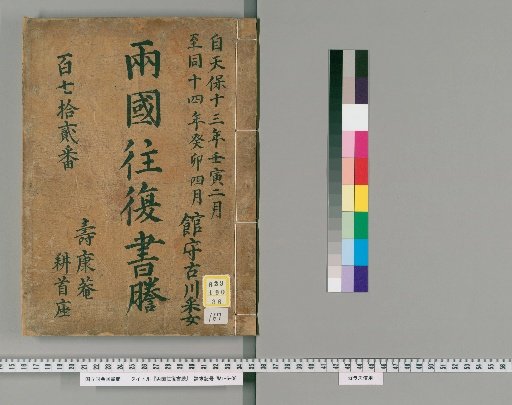 自天保十三年壬寅二月
至同十四年癸卯四月
館守古川采女
兩國往復書謄
百七拾貳番
壽康菴
耕首座